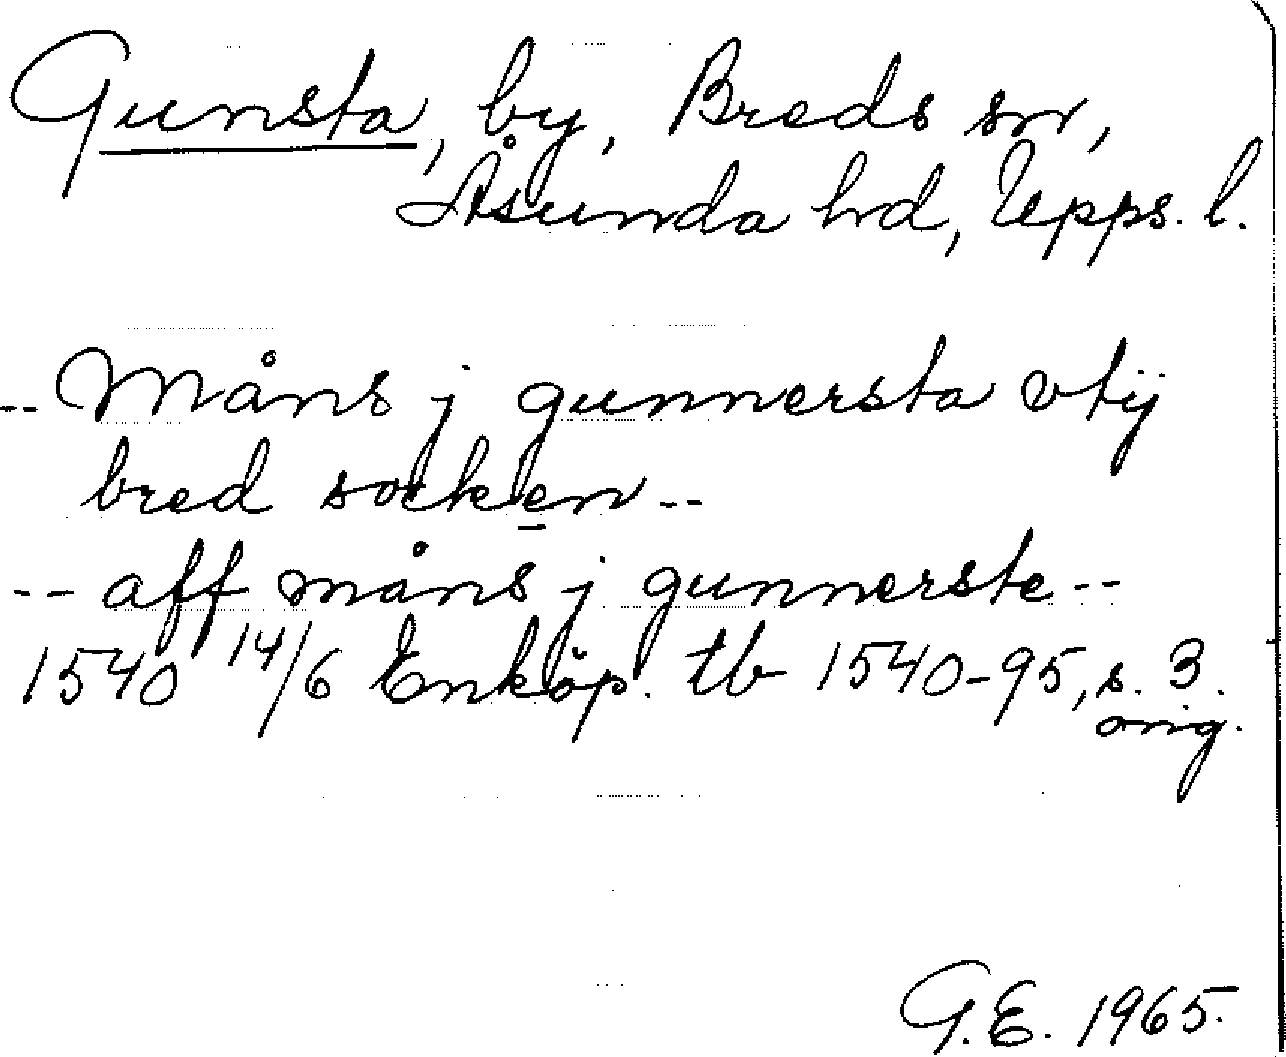 Gunsta, by, Breds sn,
Åsunda hd, Upps. l.
-- Måns j gunnersta vtij
bred socken --
-- aff måns j gunnerste --
1540 14/6 Enköp. tb 1540-95, s. 3.
orig.
G.E. 1965.